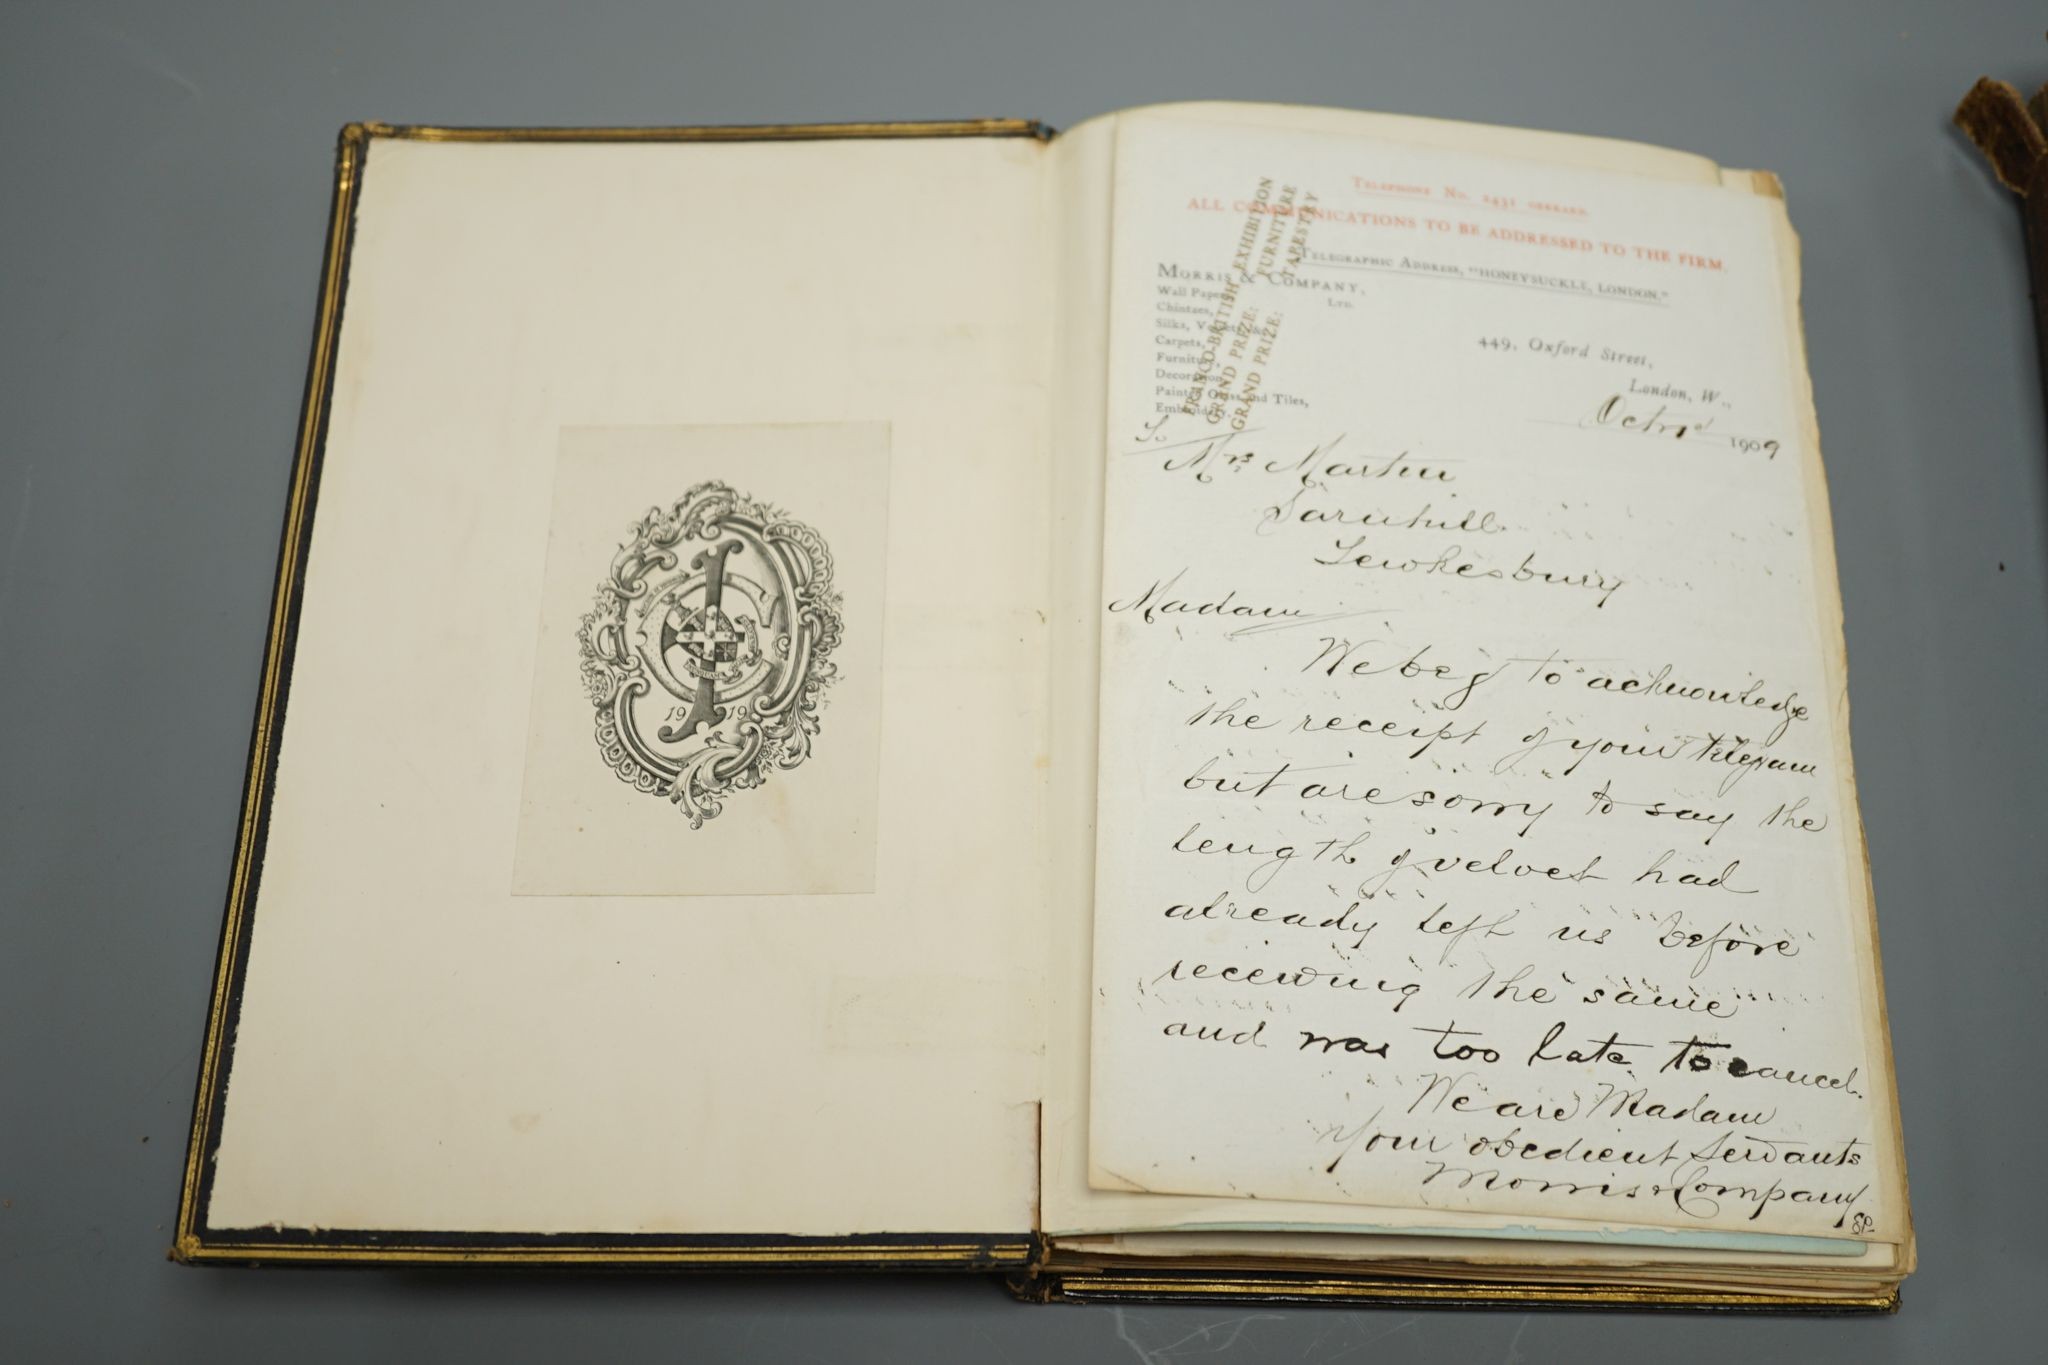 19 19
TELEPHONE No. 2431 GERRARD.
ALL COMMUNICATIONS TO BE ADDRESSED TO THE FIRM.
TELEGRAPHIC ADDRESS, "HONEYSUCKLE, LONDON."
MORRIS & COMPANY,
LTD.
Wall Papers,
Chintzes,
Silks, Velvets, &c.
Carpets,
Furniture,
Decoration,
Painted Glass and Tiles,
Embroidery.
FRANCO-BRITISH EXHIBITION
GRAND PRIZE: FURNITURE
GRAND PRIZE: TAPESTRY
449, Oxford Street,
London, W.,
Octr 1909
To
Mrs Martin
Sarnhill
Tewkesbury
Madam
We beg to acknowledge
the receipt of your telegram
but are sorry to say the
length of velvet had
already left us before
receiving the same
and was too late to cancel.
We are Madam
Your obedient Servants
Morris & Company